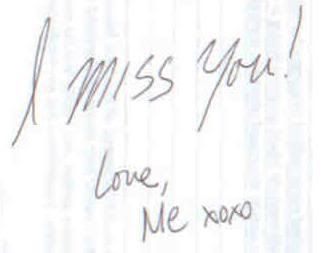 I miss you!
Love,
Me xoxo